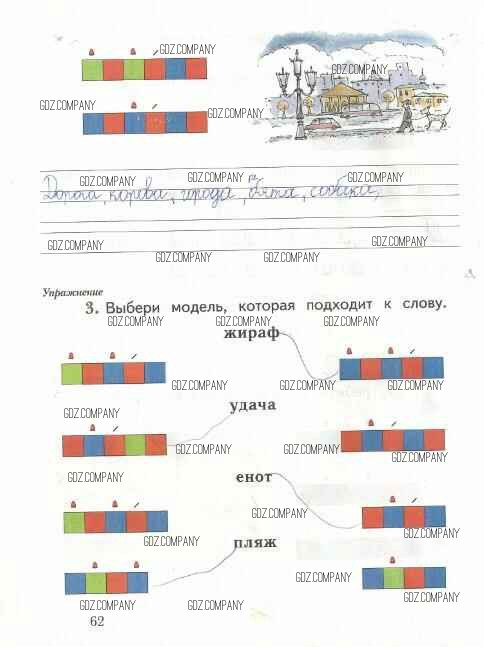 GDZ.COMPANY
GDZ.COMPANY
GDZ.COMPANY GDZ.COMPANY
GDZ.COMPANY GDZ.COMPANY
GDZ.COMPANY GDZ.COMPANY GDZ.COMPANY
Дорога, корова, города, собака,
GDZ.COMPANY GDZ.COMPANY
GDZ.COMPANY GDZ.COMPANY
Упражнение
3. Выбери модель, которая подходит к слову.
GDZ.COMPANY GDZ.COMPANY GDZ.COMPANY
жираф
GDZ.COMPANY GDZ.COMPANY GDZ.COMPANY
удача
GDZ.COMPANY
GDZ.COMPANY GDZ.COMPANY
GDZ.COMPANY
енот
GDZ.COMPANY
GDZ.COMPANY
GDZ.COMPANY
GDZ.COMPANY
пляж
GDZ.COMPANY
GDZ.COMPANY GDZ.COMPANY GDZ.COMPANY
62